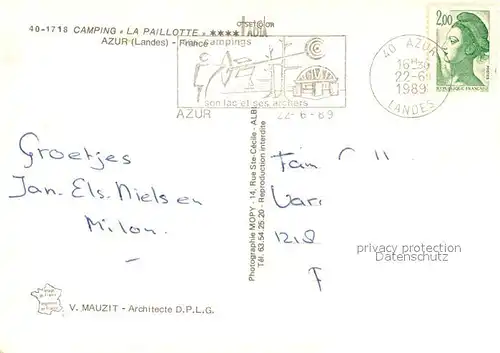 40-1718 CAMPING « LA PAILLOTTE » ★★★★
AZUR (Landes) - France
ses campings
son lac et ses archers
AZUR
22-6-89
40 AZUR
22-6
1989
LANDES
2,00
REPUBLIQUE FRANCAISE
Groetjes
Jan. Els. Niels en
Milon.
Fam
Var
1218
privacy protection
Datenschutz
Photographie MOPY - 14, Rue Ste-Cécile - ALBI
Tél. 63.54.25.20 - Reproduction interdite
V. MAUZIT - Architecte D.P.L.G.